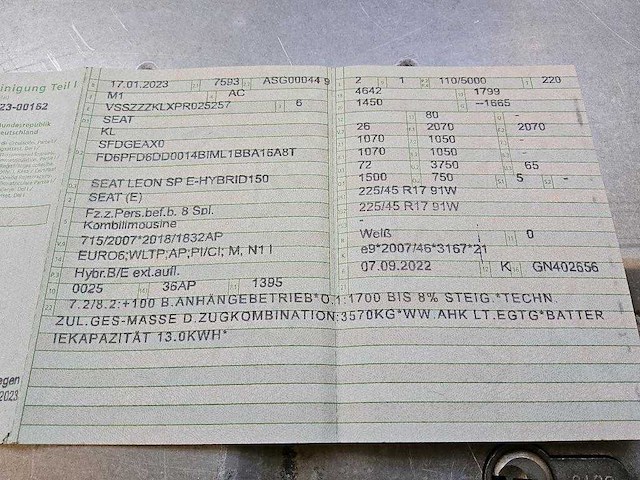 inigung Teil I
23-00162
undesrepublik
eutschland
egen
2023
17.01.2023 7593 ASG00044 9
M1 AC
VSSZZZKLXPR025257 6
SEAT
KL
SFDGEAX0
FD6PFD6DD0014BIML1BBA16A8T
SEAT LEON SP E-HYBRID150
SEAT (E)
Fz.z.Pers.bef.b. 8 Spl.
Kombilimousine
715/2007*2018/1832AP
EURO6;WLTP;AP;PI/CI; M, N1 I
Hybr.B/E ext.aufl.
0025 36AP 1395
2 1 110/5000 220
4642 1799
1450 -1665
80 -
26 2070 2070
1070 1050 -
1070 1050 -
72 3750 65
1500 750 5 -
225/45 R17 91W
225/45 R17 91W
-
Weiß 0
e9*2007/46*3167*21
07.09.2022 K GN402656
7.2/8.2:+100 B.ANHÄNGEBETRIEB*O.1:1700 BIS 8% STEIG.*TECHN.
ZUL.GES-MASSE D.ZUGKOMBINATION:3570KG*WW.AHK LT.EGTG*BATTER
IEKAPAZITÄT 13.0KWH*